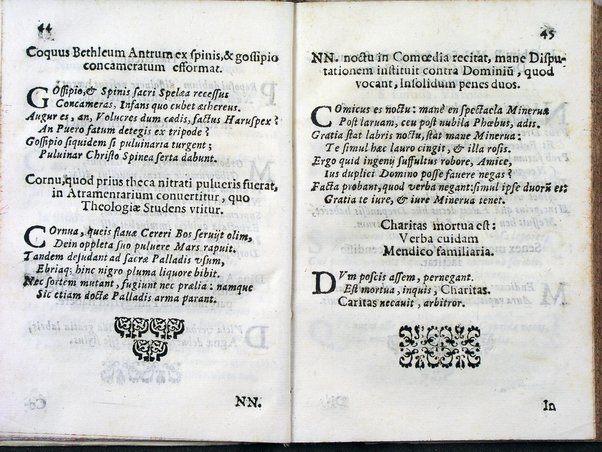 44
Coquus Bethleum Antrum ex spinis, & gossipio
concameratum efformat.
GOssipio, & Spinis sacri Spelæa recessus
Concameras, Infans quo cubet æthereus.
Augur es, an, Volucres dum cædis, factus Haruspex?
An Puero fatum detegis ex tripode?
Gossipio siquidem si puluinaria turgent;
Puluinar Christo Spinea serta dabunt.
Cornu, quod prius theca nitrati pulueris fuerat,
in Atramentarium conuertitur, quo
Theologiæ Studens vtitur.
COrnua, queis flauæ Cereri Bos seruijt olim,
Dein oppleta suo puluere Mars rapuit.
Tandem desudant ad sacræ Palladis vsum,
Ebriaq; hinc nigro pluma liquore bibit.
Nec sortem mutant, fugiunt nec prælia: namque
Sic etiam doctæ Palladis arma parant.
NN.
45
NN. noctu in Comœdia recitat, mane Dispu-
tationem instituit contra Dominiũ, quod
vocant, Insolidum penes duos.
COmicus es noctu: manè en spectacla Mineruæ
Post laruam, ceu post nubila Phœbus, adis.
Gratia stat labris noctu, stat mane Minerua:
Te simul hæc lauro cingit, & illa rosis.
Ergo quid ingenij suffultus robore, Amice,
Ius duplici Domino posse fauere negas?
Facta probant, quod verba negant: simul ipse duorũ es:
Gratia te iure, & iure Minerua tenet.
Charitas mortua est:
Verba cuidam
Mendico familiaria.
DVm poscis assem, pernegant.
Est mortua, inquis, Charitas.
Caritas necauit, arbitror.
In